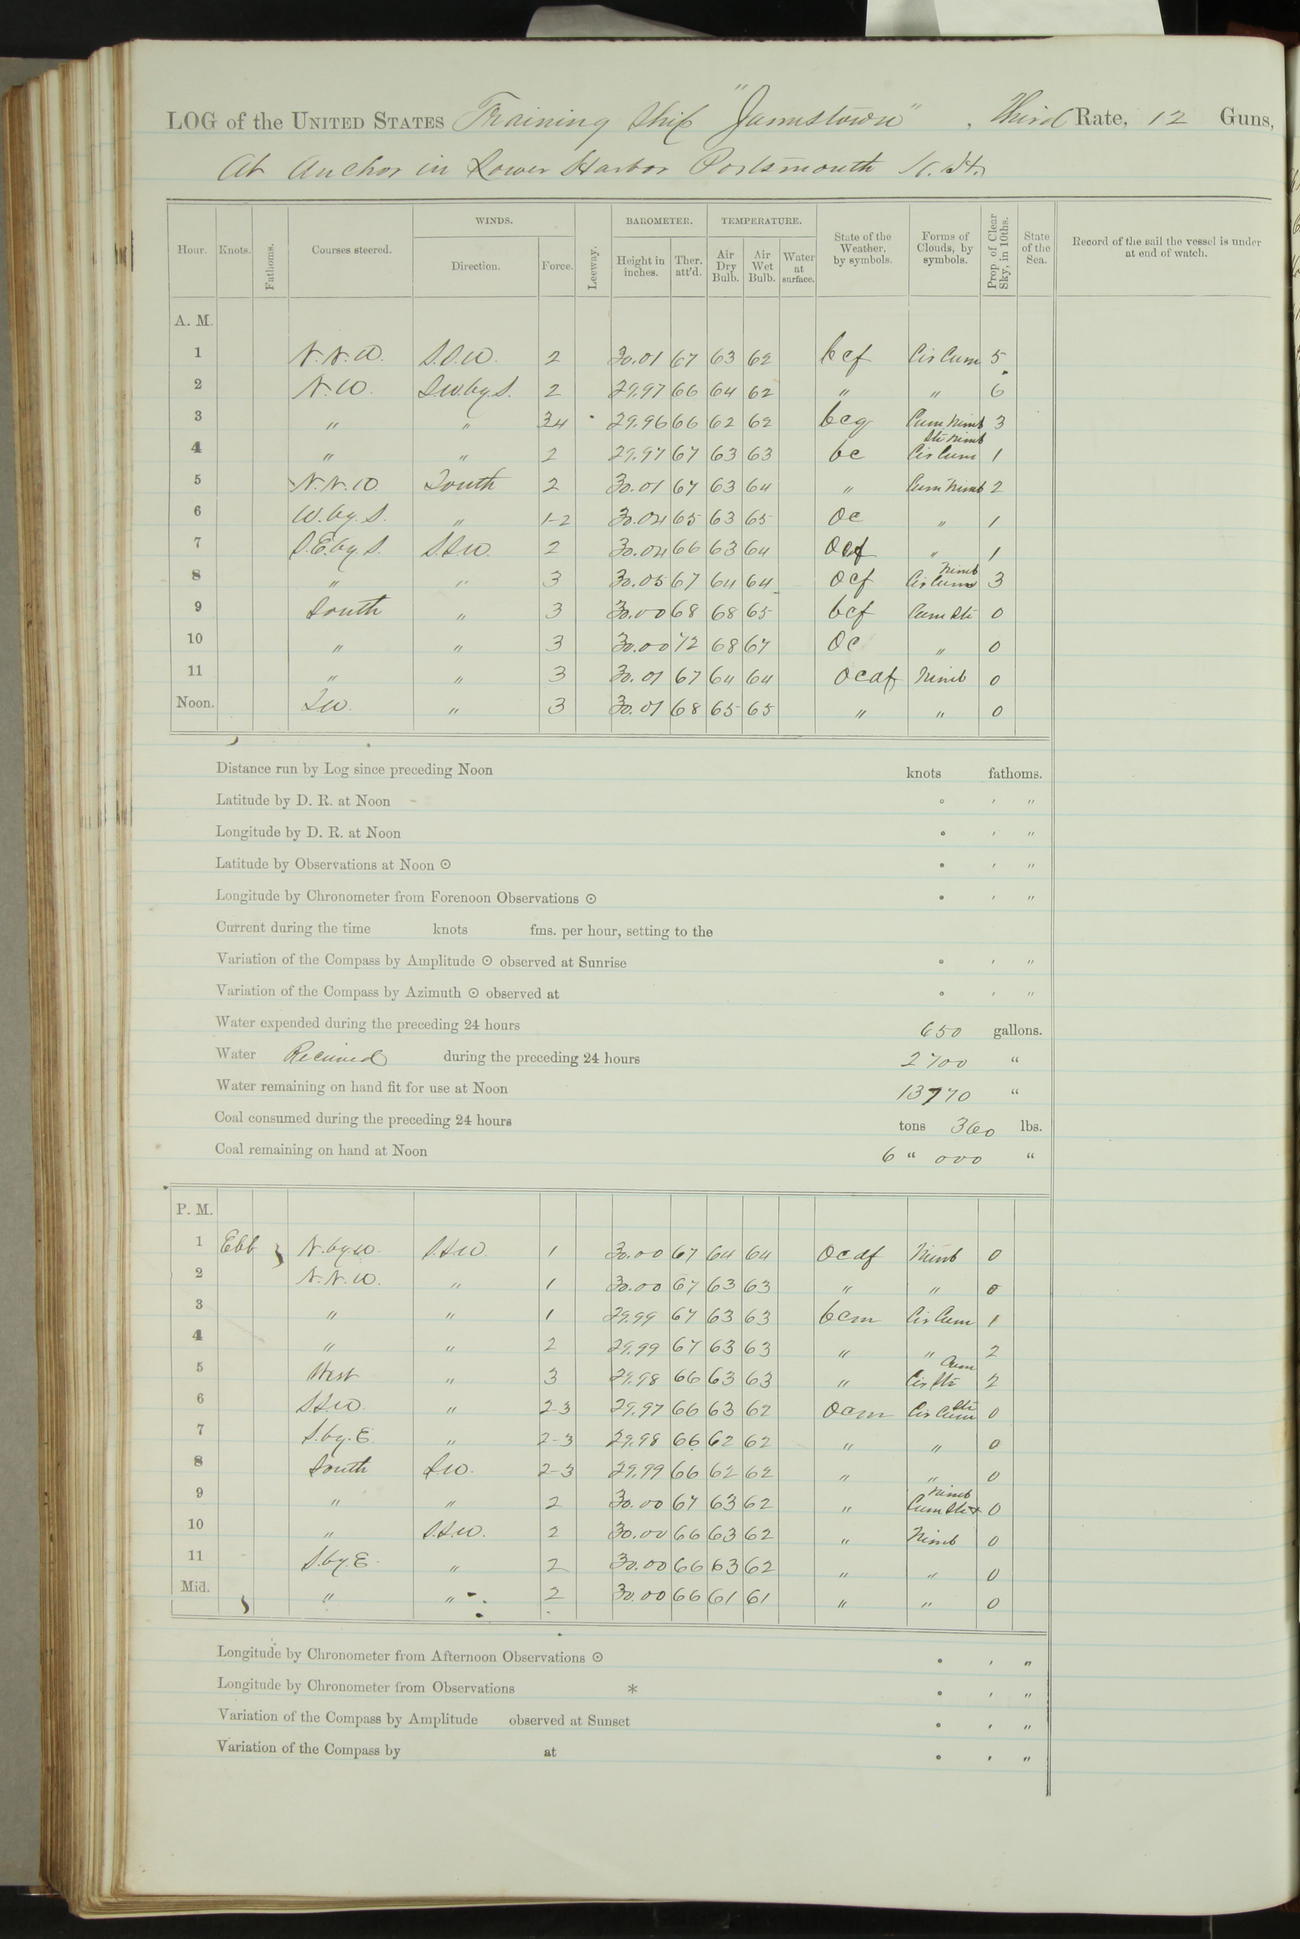 LOG of the UNITED STATES Training Ship "Jamestown", Third Rate, 12 Guns,
At Anchor in Lower Harbor Portsmouth N. H.
Hour. Knots. Fathoms. Courses steered. WINDS. Direction. Force. Leeway. BAROMETER. Height in inches. Ther. att'd. TEMPERATURE. Air Dry Bulb. Air Wet Bulb. Water at surface. State of the Weather, by symbols. Forms of Clouds, by symbols. Prop. of Clear Sky, in 10ths. State of the Sea. Record of the sail the vessel is under at end of watch.
A. M.
1 N.N.W. S.S.W. 2 30.01 67 63 62 bcf Cir Cum 5
2 N.W. S.W. by S. 2 29.97 66 64 62 " " 6
3 " " 34 29.96 66 62 62 bcg Cum Nimb 3
4 " " 2 29.97 67 63 63 bc Str Nimb Cir Cum 1
5 N.N.W South 2 30.01 67 63 64 " Cum Nimb 2
6 W. by S. " 1-2 30.04 65 63 65 oc " 1
7 S.E. by S. S.S.W. 2 30.04 66 63 64 ocf " 1
8 " " 3 30.05 67 64 64 ocf Nimb Cir Cum 3
9 South " 3 30.00 68 68 65 bcf Cum Str 0
10 " " 3 30.00 72 68 67 oc " 0
11 " " 3 30.01 67 64 64 ocdf Nimb 0
Noon. S.W. " 3 30.01 68 65 65 " " 0
Distance run by Log since preceding Noon knots fathoms.
Latitude by D. R. at Noon ° ' "
Longitude by D. R. at Noon ° ' "
Latitude by Observations at Noon ⊙ ° ' "
Longitude by Chronometer from Forenoon Observations ⊙ ° ' "
Current during the time knots fms. per hour, setting to the
Variation of the Compass by Amplitude ⊙ observed at Sunrise ° ' "
Variation of the Compass by Azimuth ⊙ observed at ° ' "
Water expended during the preceding 24 hours 650 gallons.
Water Received during the preceding 24 hours 2700 "
Water remaining on hand fit for use at Noon 13770 "
Coal consumed during the preceding 24 hours tons 360 lbs.
Coal remaining on hand at Noon 6 " 000 "
P. M.
1 Ebb N. by W. S.S.W. 1 30.00 67 64 64 ocdf Nimb 0
2 N.N.W. " 1 30.00 67 63 63 " " 0
3 " " 1 29.99 67 63 63 bcm Cir Cum 1
4 " " 2 29.99 67 63 63 " " 2
5 West " 3 29.98 66 63 63 " Cum Cir Str 2
6 S.S.W. " 2-3 29.97 66 63 62 ocm Str Cir Cum 0
7 S. by E. " 2-3 29.98 66 62 62 " " 0
8 South S.W. 2-3 29.99 66 62 62 " " 0
9 " " 2 30.00 67 63 62 " Nimb Cum Str 0
10 " S.S.W. 2 30.00 66 63 62 " Nimb 0
11 S. by E. " 2 30.00 66 63 62 " " 0
Mid. " " 2 30.00 66 61 61 " " 0
Longitude by Chronometer from Afternoon Observations ⊙ ° ' "
Longitude by Chronometer from Observations * ° ' "
Variation of the Compass by Amplitude observed at Sunset ° ' "
Variation of the Compass by at ° ' "